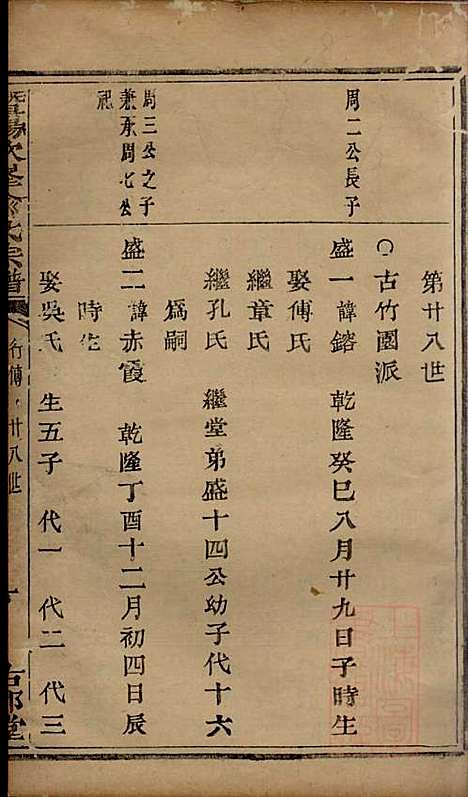 第廿八世
○古竹園派
周二公長子
盛一 諱鎔 乾隆癸巳八月廿九日子時生
娶傅氏
繼章氏
繼孔氏 繼堂弟盛十四公幼子代十六
爲嗣
周三公之子
兼承周七公
祀
盛二 諱赤霞 乾隆丁酉十二月初四日辰
時生
娶吳氏 生五子 代一 代二 代三
氏宗譜 行傳 廿八世